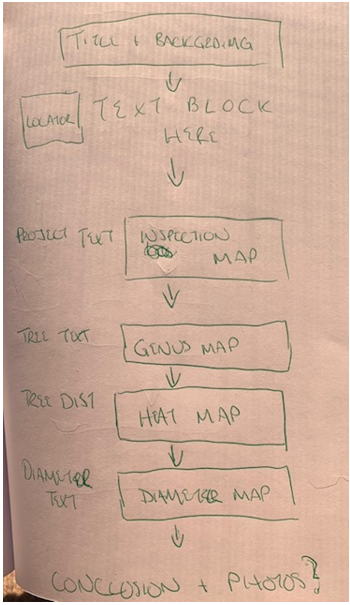 TITLE + BACKGROUND
LOCATOR TEXT BLOCK
HERE
PROJECT TEXT INSPECTION
MAP
TREE TEXT GENUS MAP
TREE DIST HEAT MAP
DIAMETER TEXT DIAMETER MAP
CONCLUSION + PHOTOS?